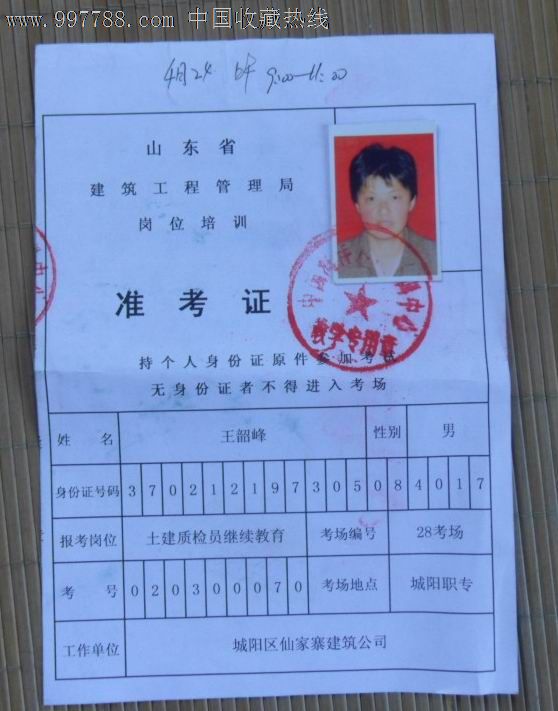 www.997788.com 中国收藏热线
4月24 9:00-11:00
山东省
建筑工程管理局
岗位培训
准考证
持个人身份证原件参加考试
无身份证者不得进入考场
教学专用章
姓名 王韶峰 性别 男
身份证号码 370212197305084017
报考岗位 土建质检员继续教育 考场编号 28考场
考号 020300070 考场地点 城阳职专
工作单位 城阳区仙家寨建筑公司